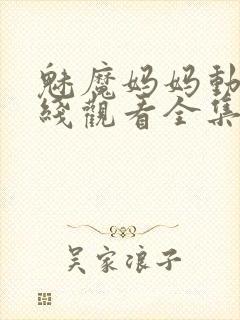 魅魔妈妈動
綫觀看全集
吴家浪子